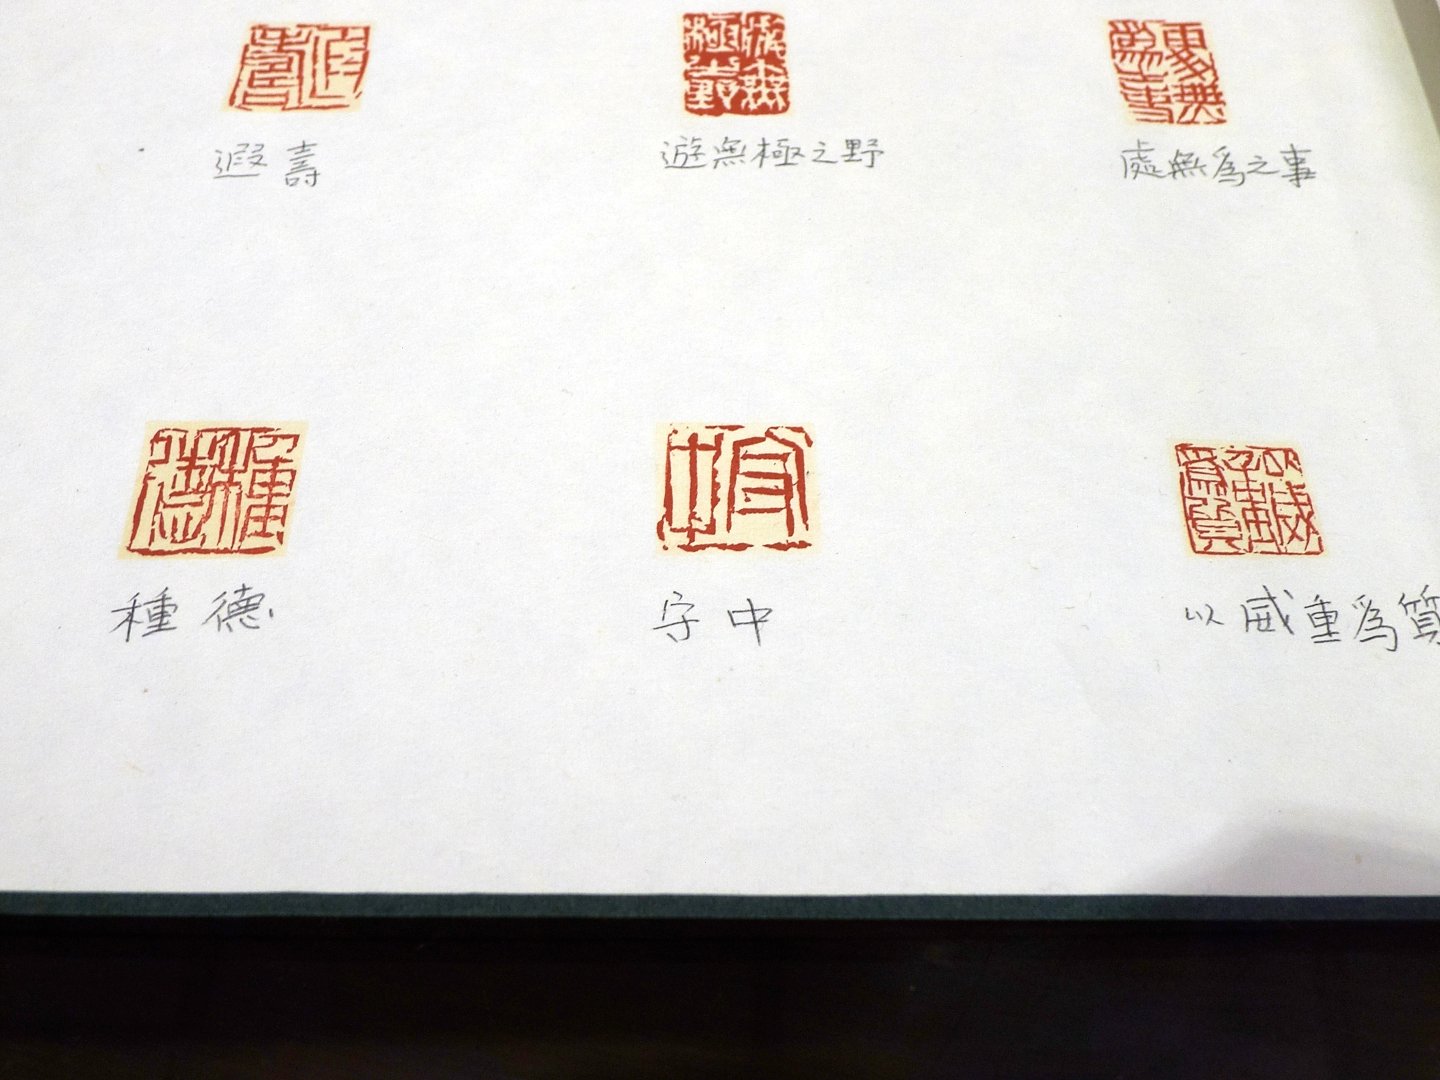 遐壽
遊無極之野
處無爲之事
種德
守中
以威重爲質